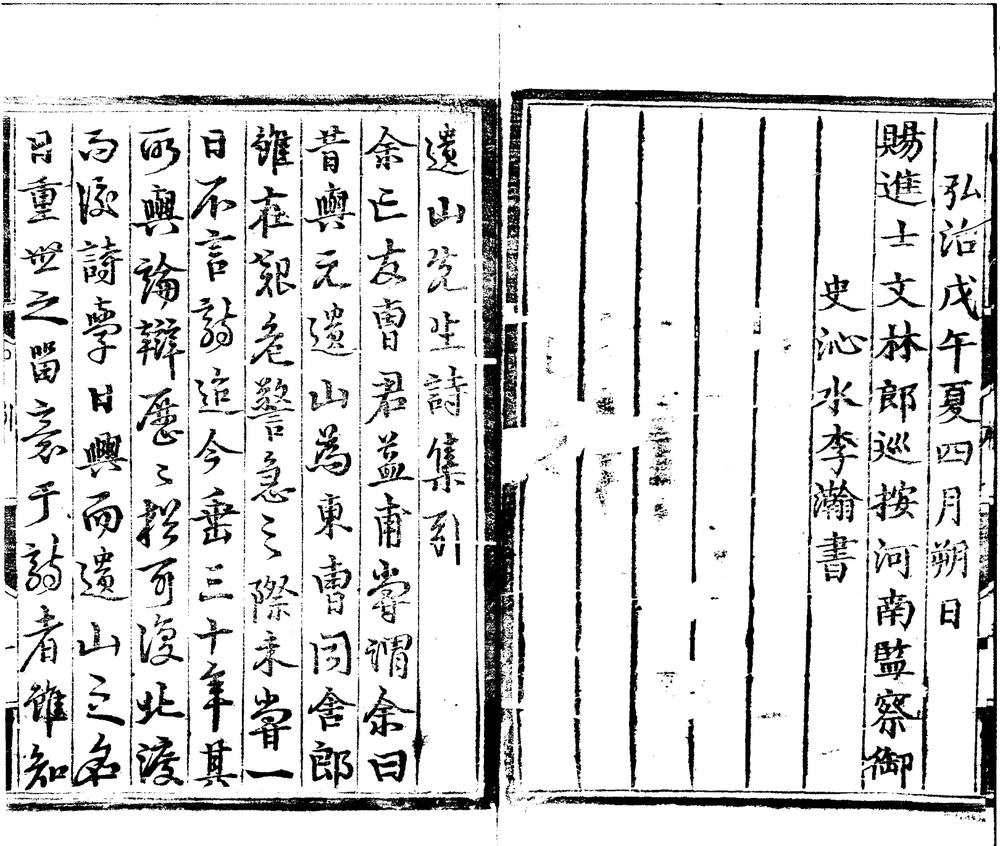 弘治戊午夏四月朔日
賜進士文林郎巡按河南監察御
史沁水李瀚書
遺山先生詩集引
余亡友曹君益甫嘗謂余曰
昔與元遺山為東曹同舍郎
雖在艱危警急之際未嘗一
日不言詩迨今垂三十年其
所與論辯歷〻猶可復北渡
而後詩學日興而遺山之名
日重世之留意于詩者雖知